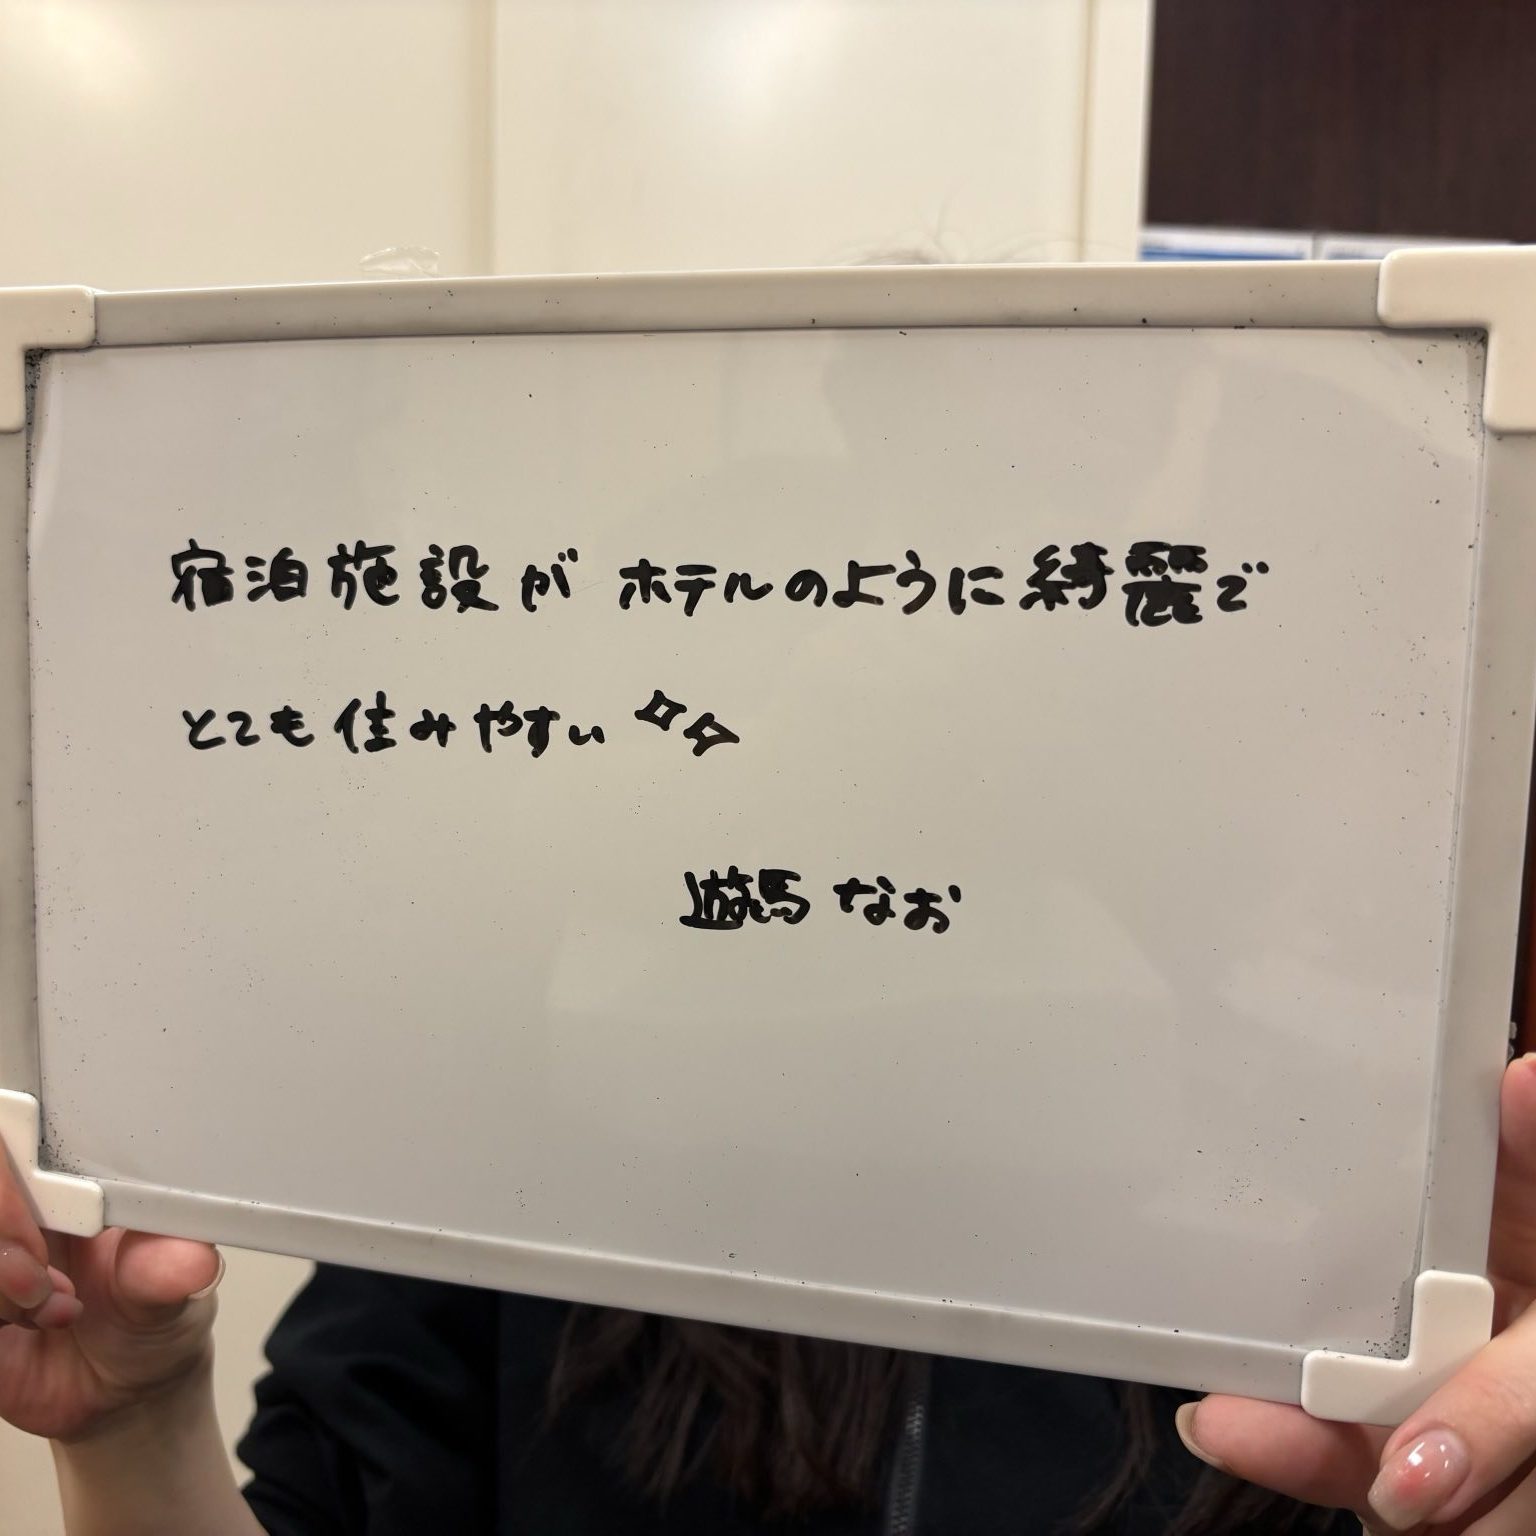 宿泊施設がホテルのように綺麗で
とても住みやすい✧✧
遊馬なお